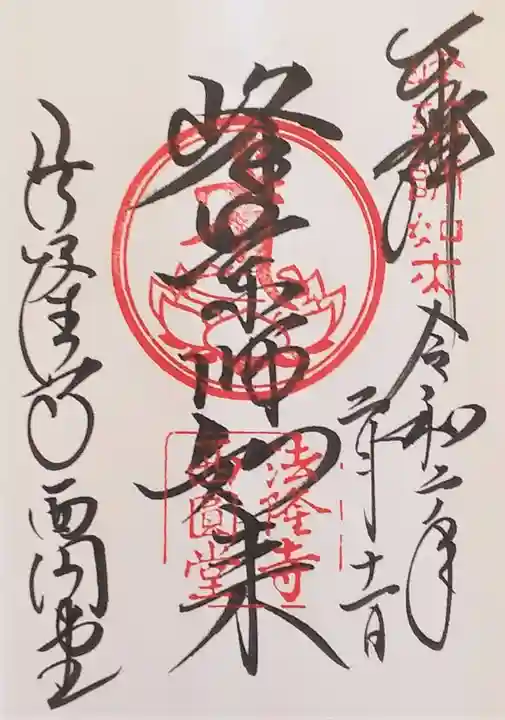 奉拝
令和二年
二月十一日
峰薬師如来
法隆寺
西圓堂
法隆寺 西円堂